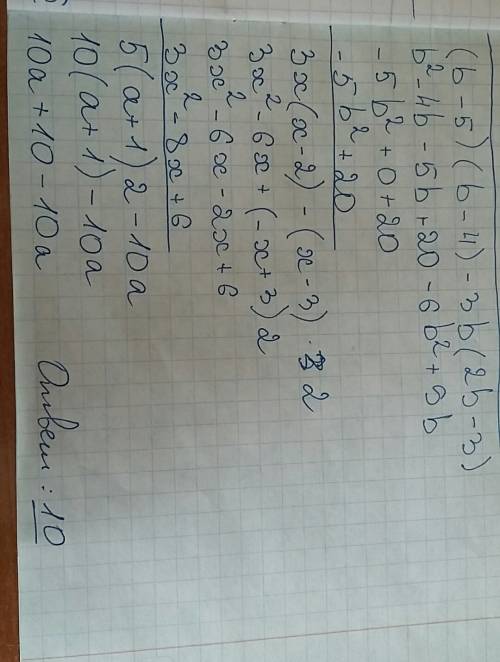 (b - 5)(b - 4) - 3b(2b - 3)
b² - 4b - 5b + 20 - 6b² + 9b
- 5b² + 0 + 20
- 5b² + 20
3x(x - 2) - (x - 3) · 2
3x² - 6x + (-x + 3)2
3x² - 6x - 2x + 6
3x² - 8x + 6
5(a + 1)2 - 10a
10(a + 1) - 10a
10a + 10 - 10a Ответ: 10